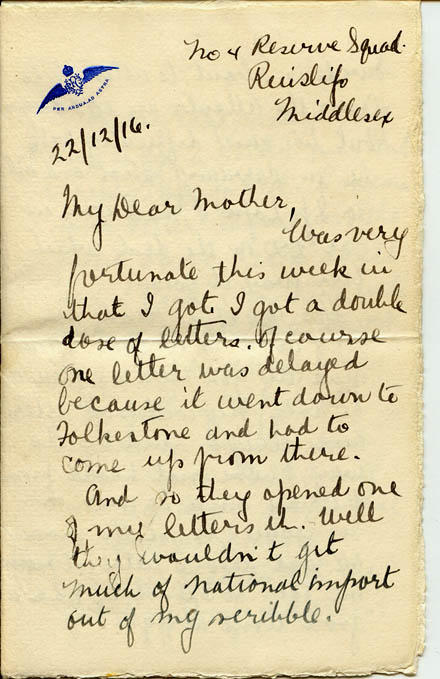 No 4 Reserve Squad.
Ruislip
Middlesex
PER ARDUA AD ASTRA
22/12/16.
My Dear Mother,
Was very
fortunate this week in
that I got, I got a double
dose of letters. Of course
one letter was delayed
because it went down to
Folkestone and had to
come up from there.
And so they opened one
of my letters eh. Well
they wouldn't get
much of national import
out of my scribble.